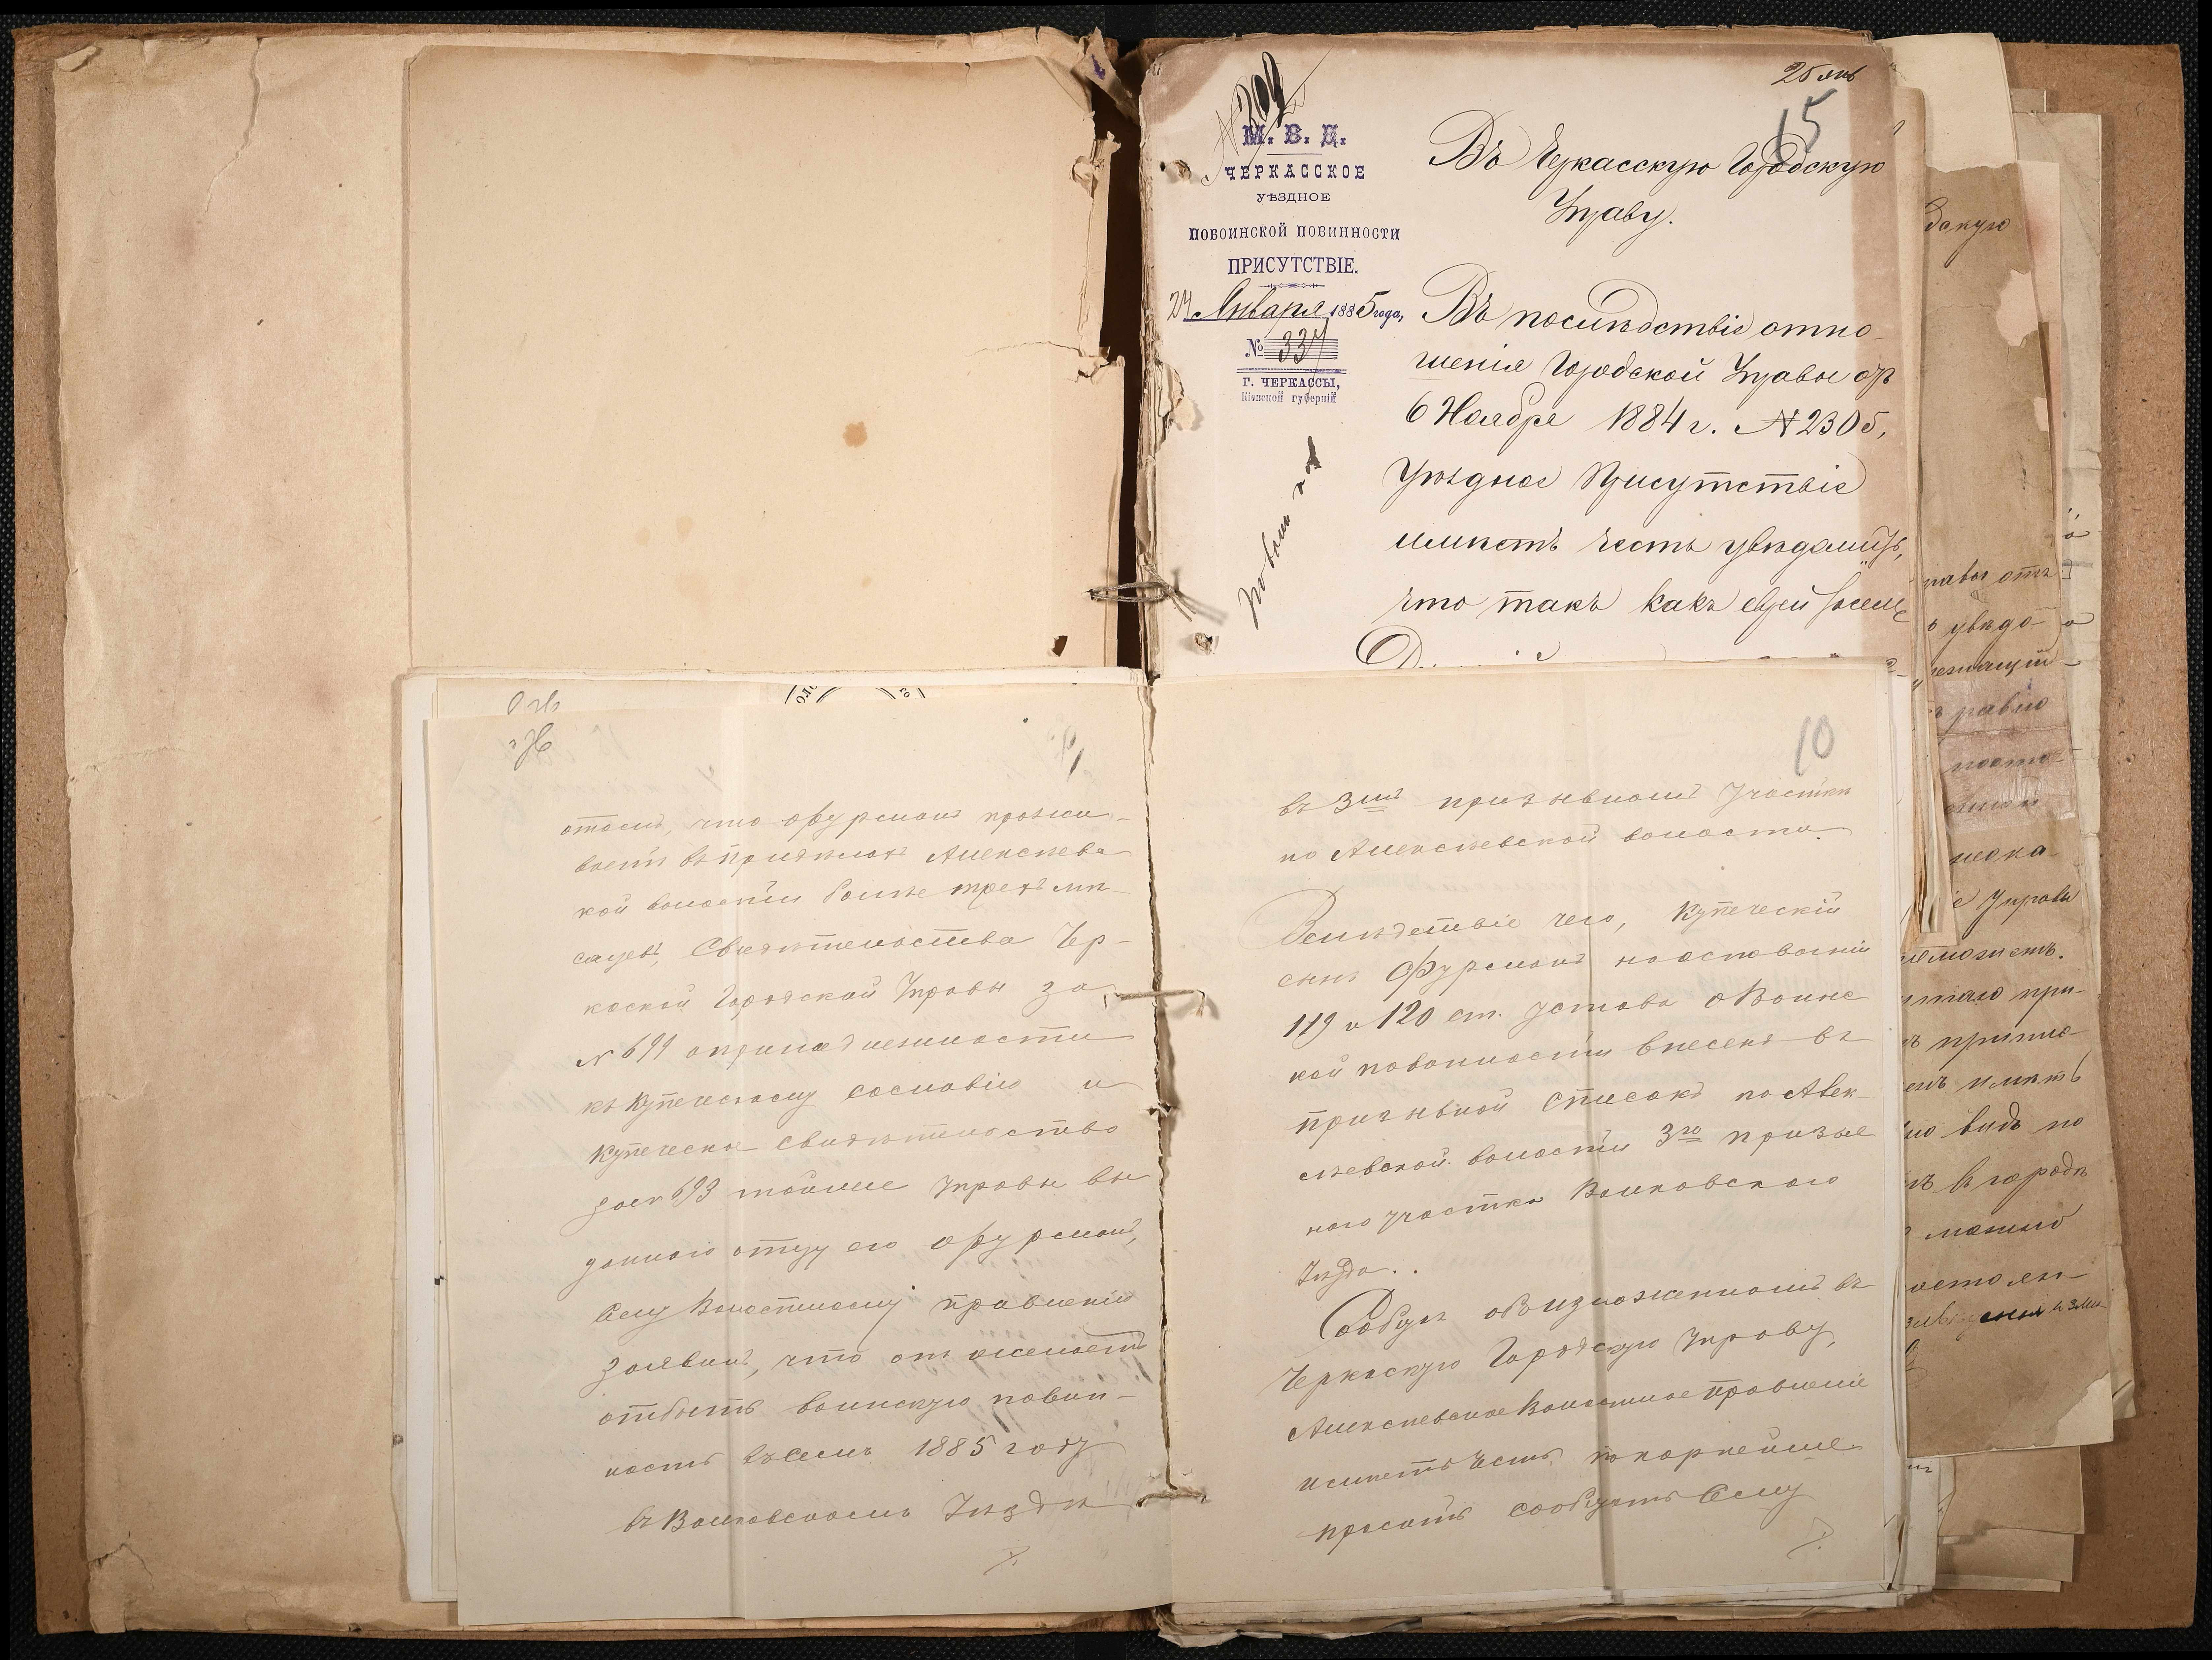 25 янв
15
М. В. Д.
ЧЕРКАССКОЕ
УѢЗДНОЕ
ПОВОИНСКОЙ ПОВИННОСТИ
ПРИСУТСТВІЕ.
24 Января 1885 года,
№ 337
Г. ЧЕРКАССЫ,
Кіевской губерніи
Въ Черкасскую Городскую
Управу.
Въ послѣдствіе отно-
шенія Городской Управы отъ
6 Ноября 1884 г. № 2305,
Уѣздное Присутствіе
имѣетъ честь увѣдомить,
что такъ какъ еврей
отомъ, что Фурманъ прожи-
ваетъ въ предѣлахъ Алексѣевс
кой волости болѣе трехъ мѣ-
сяцевъ, Свидѣтельства Чер-
каской Городской Управы за
№ 691 о принадлежности
къ Купеческому сословію и
Купеческое свидѣтельство
за № 693 тойже Управы вы
даннаго отцу его Фурманъ,
Сему Волостному правленію
заявилъ, что онъ желаетъ
отбыть воинскую повин-
ность въ семъ 1885 году
въ Валковскомъ Уѣздѣ
10
въ 3мъ призывномъ Участкѣ
по Алексѣевской волости.
Вслѣдствіе чего, Купеческій
сынъ Фурманъ на основаніи
119 и 120 ст. Устава о Воинс
кой повинности внесенъ въ
призывной списокъ по Алек-
сѣевской волости 3го призыв
наго участка Валковского
Уѣзда.
Сообщая объ изложенномъ въ
Черкаскую Городскую Управу,
Алексѣевское Волостное правленіе
имѣетъ честь покорнейше
просить сообщить Сему
дскую
равы отъ
увѣдо-
равно
Управы
можетъ.
при-
имѣть
видъ по
въ городѣ
можно